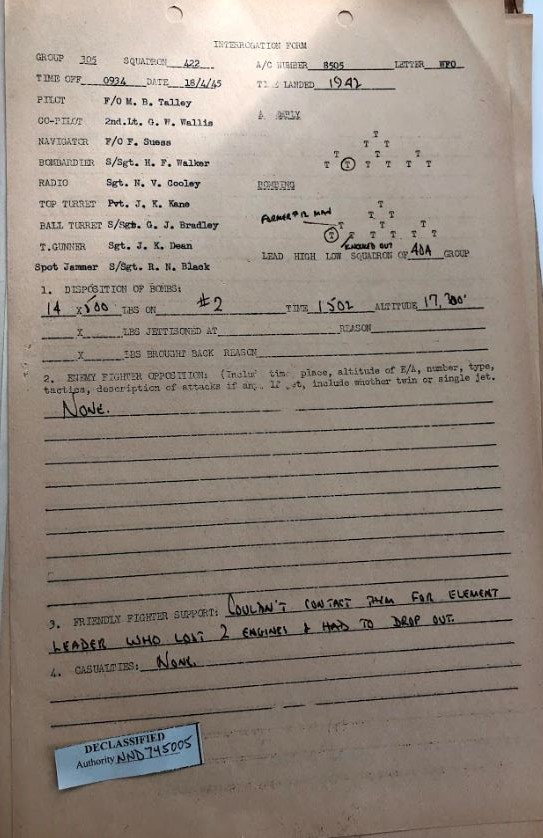 INTERROGATION FORM
GROUP 305 SQUADRON 422 A/C NUMBER 8505 LETTER WFO
TIME OFF 0934 DATE 18/4/45 LANDED 1942
PILOT F/O M. B. Talley
CO-PILOT 2nd.Lt. G. W. Wallis
NAVIGATOR F/O F. Suess
BOMBARDIER S/Sgt. H. F. Walker
RADIO Sgt. N. V. Cooley
TOP TURRET Pvt. J. K. Kane
BALL TURRET S/Sgt. G. J. Bradley
T.GUNNER Sgt. J. K. Dean
Spot Jammer S/Sgt. R. N. Black
T
T T
T T T
T T T T T T
BOMBING
FORMER #12 MAN
T
T T
T T T
T T T T T T
KNOCKED OUT
LEAD HIGH LOW SQUADRON OF 40A GROUP
1. DISPOSITION OF BOMBS:
14 X 500 LBS ON #2 TIME 1502 ALTITUDE
X LBS JETTISONED AT REASON
X LBS BROUGHT BACK REASON
2. ENEMY FIGHTER OPPOSITION: place, altitude of E/A, number, type,
tactics, description of attacks if include whether twin or single jet.
NONE.
3. FRIENDLY FIGHTER SUPPORT: COULDN'T CONTACT THEM FOR ELEMENT
LEADER WHO LOST 2 ENGINES & HAD TO DROP OUT.
4. CASUALTIES: NONE.
DECLASSIFIED
Authority NND745005